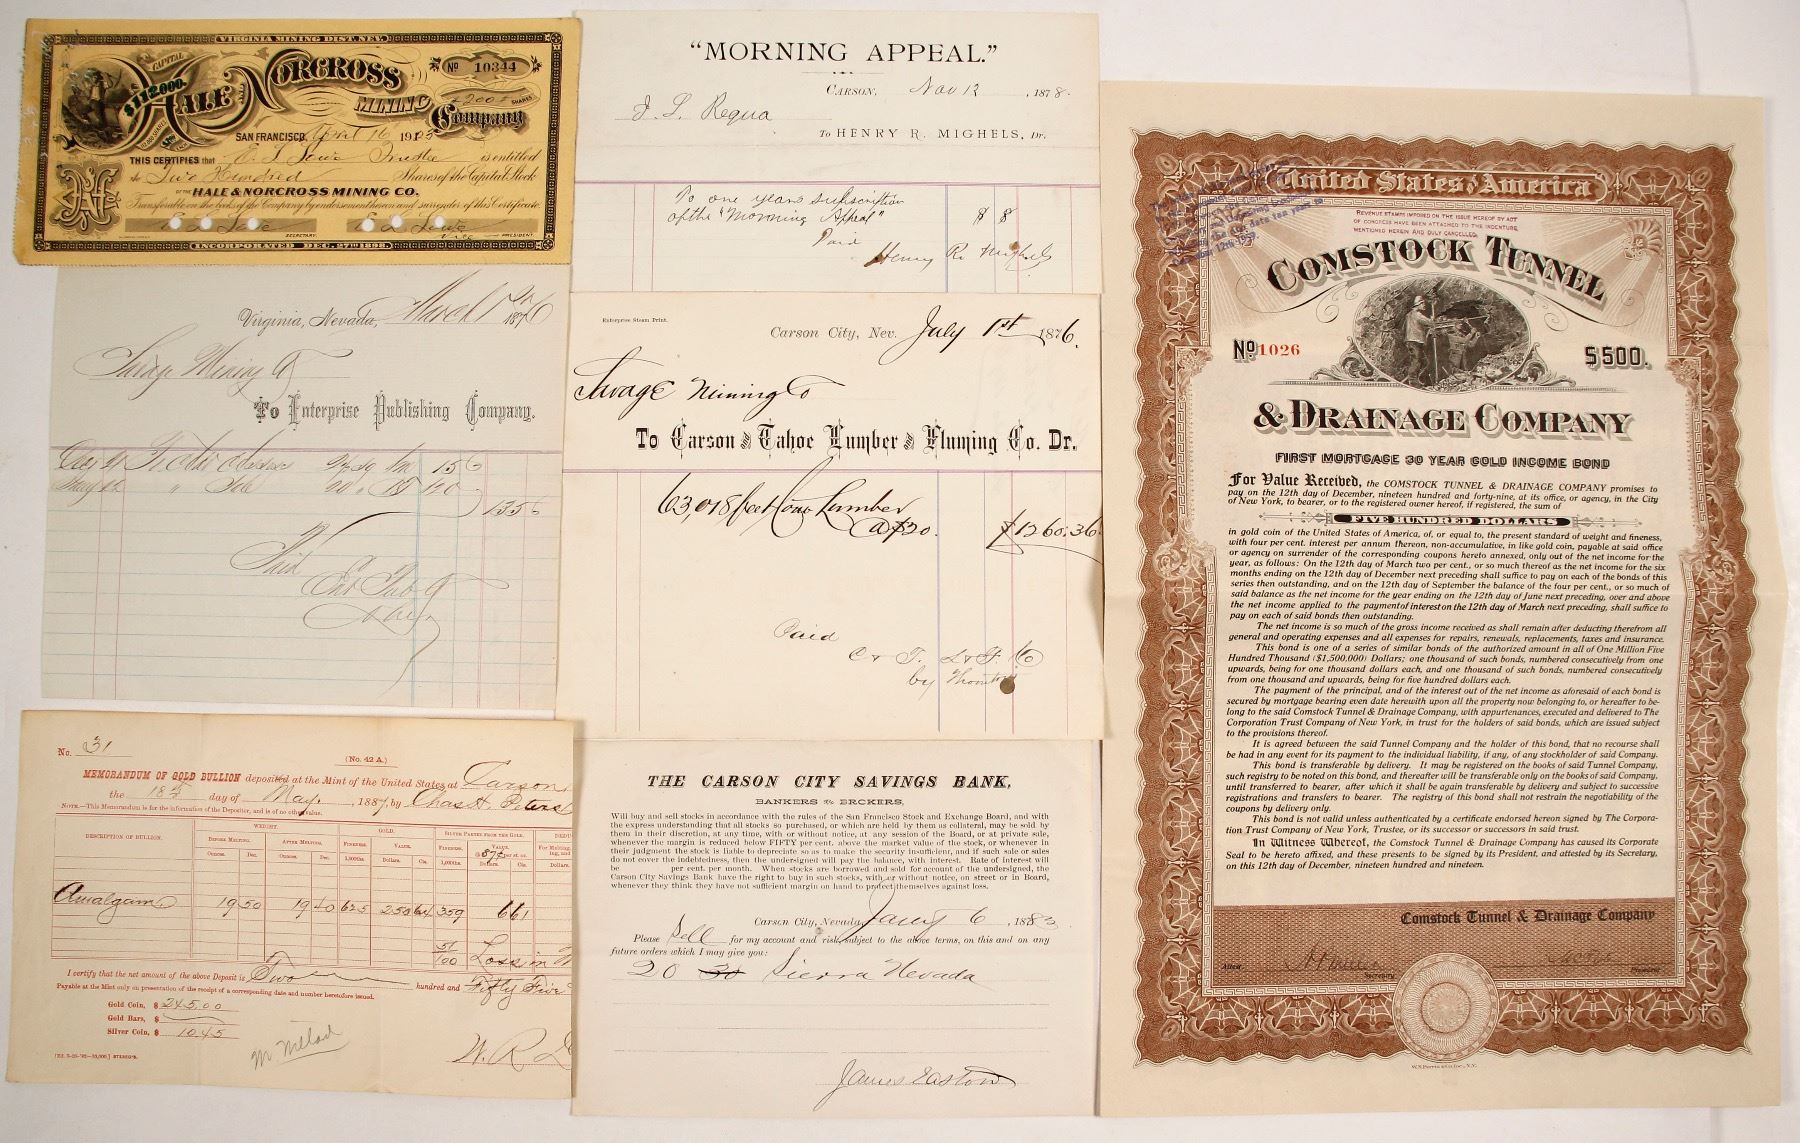 VIRGINIA MINING DIST. NEV.
CAPITAL
$112,000.
HALE AND NORCROSS
MINING
Company
No 10344
200 SHARES
SAN FRANCISCO, April 16 1923
THIS CERTIFIES that E. L. Lowe Trustee is entitled
to Two Hundred Shares of the Capital Stock
OF THE HALE & NORCROSS MINING CO.
Transferable on the books of the Company by endorsement hereon and surrender of this Certificate.
SECRETARY. Vice PRESIDENT.
INCORPORATED DEC. 27TH 1898.
"MORNING APPEAL."
CARSON, Nov 12, 1878.
I. L. Requa
To HENRY R. MIGHELS, Dr.
To one years subscription
of the "Morning Appeal" $ 8
Paid
Henry R. Mighels
Virginia, Nevada, March 1876
Savage Mining Co
To Enterprise Publishing Company.
156
1356
Paid
Enterprise Steam Print.
Carson City, Nev. July 1st 1876.
Savage Mining Co
To Carson and Tahoe Lumber and Fluming Co. Dr.
63,018 feet Lumber
@ $20. $1260.36
Paid
C & T. L & F. Co
by
No. 31
(No. 42 A.)
MEMORANDUM OF GOLD BULLION deposited at the Mint of the United States at Carson
the 18th day of May, 1887, by Chas. H. Peters
NOTE.—This Memorandum is for the information of the Depositor, and is of no other value.
DESCRIPTION OF BULLION. WEIGHT. GOLD. SILVER PARTED FROM THE GOLD.
BEFORE MELTING. AFTER MELTING. FINENESS. VALUE. FINENESS. VALUE.
Ounces. Dec. Ounces. Dec. 1,000ths. Dollars. Cts. 1,000ths. Dollars. Cts.
Amalgam 19 50 19 40 625 250 64 359 661
Loss in
I certify that the net amount of the above Deposit is Two hundred and Fifty Five
Payable at the Mint only on presentation of the receipt of a corresponding date and number heretofore issued.
Gold Coin, $ 245.00
Gold Bars, $
Silver Coin, $ 10.45
THE CARSON CITY SAVINGS BANK,
BANKERS & BROKERS,
Will buy and sell stocks in accordance with the rules of the San Francisco Stock and Exchange Board, and with
the express understanding that all stocks so purchased, or which are held by them as collateral, may be sold by
them in their discretion, at any time, with or without notice, at any session of the Board, or at private sale,
whenever the margin is reduced below FIFTY per cent. above the market value of the stock, or whenever in
their judgment the stock is liable to depreciate so as to make the security insufficient, and if such sale or sales
do not cover the indebtedness, then the undersigned will pay the balance, with interest. Rate of interest will
be per cent. per month. When stocks are borrowed and sold for account of the undersigned, the
Carson City Savings Bank have the right to buy in such stocks, with or without notice, on street or in Board,
whenever they think they have not sufficient margin on hand to protect themselves against loss.
Carson City, Nevada, Jany 6, 1883
Please Sell for my account and risk, subject to the above terms, on this and on any
future orders which I may give you:
20 30 Sierra Nevada
James Easton
United States of America
REVENUE STAMPS IMPOSED ON THE ISSUE HEREOF BY ACT
OF CONGRESS HAVE BEEN ATTACHED TO THE INDENTURE
MENTIONED HEREIN AND DULY CANCELLED.
COMSTOCK TUNNEL
No 1026 $500.
& DRAINAGE COMPANY
FIRST MORTGAGE 30 YEAR GOLD INCOME BOND
For Value Received, the COMSTOCK TUNNEL & DRAINAGE COMPANY promises to
pay on the 12th day of December, nineteen hundred and forty-nine, at its office, or agency, in the City
of New York, to bearer, or to the registered owner hereof, if registered, the sum of
FIVE HUNDRED DOLLARS
in gold coin of the United States of America, of, or equal to, the present standard of weight and fineness,
with four per cent. interest per annum thereon, non-accumulative, in like gold coin, payable at said office
or agency on surrender of the corresponding coupons hereto annexed, only out of the net income for the
year, as follows: On the 12th day of March two per cent., or so much thereof as the net income for the six
months ending on the 12th day of December next preceding shall suffice to pay on each of the bonds of this
series then outstanding, and on the 12th day of September the balance of the four per cent., or so much of
said balance as the net income for the year ending on the 12th day of June next preceding, over and above
the net income applied to the payment of interest on the 12th day of March next preceding, shall suffice to
pay on each of said bonds then outstanding.
The net income is so much of the gross income received as shall remain after deducting therefrom all
general and operating expenses and all expenses for repairs, renewals, replacements, taxes and insurance.
This bond is one of a series of similar bonds of the authorized amount in all of One Million Five
Hundred Thousand ($1,500,000) Dollars; one thousand of such bonds, numbered consecutively from one
upwards, being for one thousand dollars each, and one thousand of such bonds, numbered consecutively
from one thousand and upwards, being for five hundred dollars each.
The payment of the principal, and of the interest out of the net income as aforesaid of each bond is
secured by mortgage bearing even date herewith upon all the property now belonging to, or hereafter to be-
long to the said Comstock Tunnel & Drainage Company, with appurtenances, executed and delivered to The
Corporation Trust Company of New York, in trust for the holders of said bonds, which are issued subject
to the provisions thereof.
It is agreed between the said Tunnel Company and the holder of this bond, that no recourse shall
be had in any event to the individual liability, if any, of any stockholder of said Company.
This bond is transferable by delivery. It may be registered on the books of said Tunnel Company,
such registry to be noted on this bond, and thereafter will be transferable only on the books of said Company,
until transferred to bearer, after which it shall be again transferable by delivery and subject to successive
registrations and transfers to bearer. The registry of this bond shall not restrain the negotiability of the
coupons by delivery only.
This bond is not valid unless authenticated by a certificate endorsed hereon signed by The Corpora-
tion Trust Company of New York, Trustee, or its successor or successors in said trust.
In Witness Whereof, the Comstock Tunnel & Drainage Company has caused its Corporate
Seal to be hereto affixed, and these presents to be signed by its President, and attested by its Secretary,
on this 12th day of December, nineteen hundred and nineteen.
Comstock Tunnel & Drainage Company
Attest
Secretary President